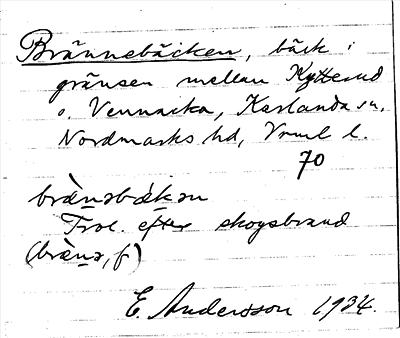 Brännebäcken, bäck i
gränsen mellan Kytterud
o. Vennacka, Karlanda sn,
Nordmarks hd, Vrml l.
70
brὰ̀nəbὰkən
Trol. efter skogsbrand
(brὰ̀nə, f)
E. Andersson 1934.